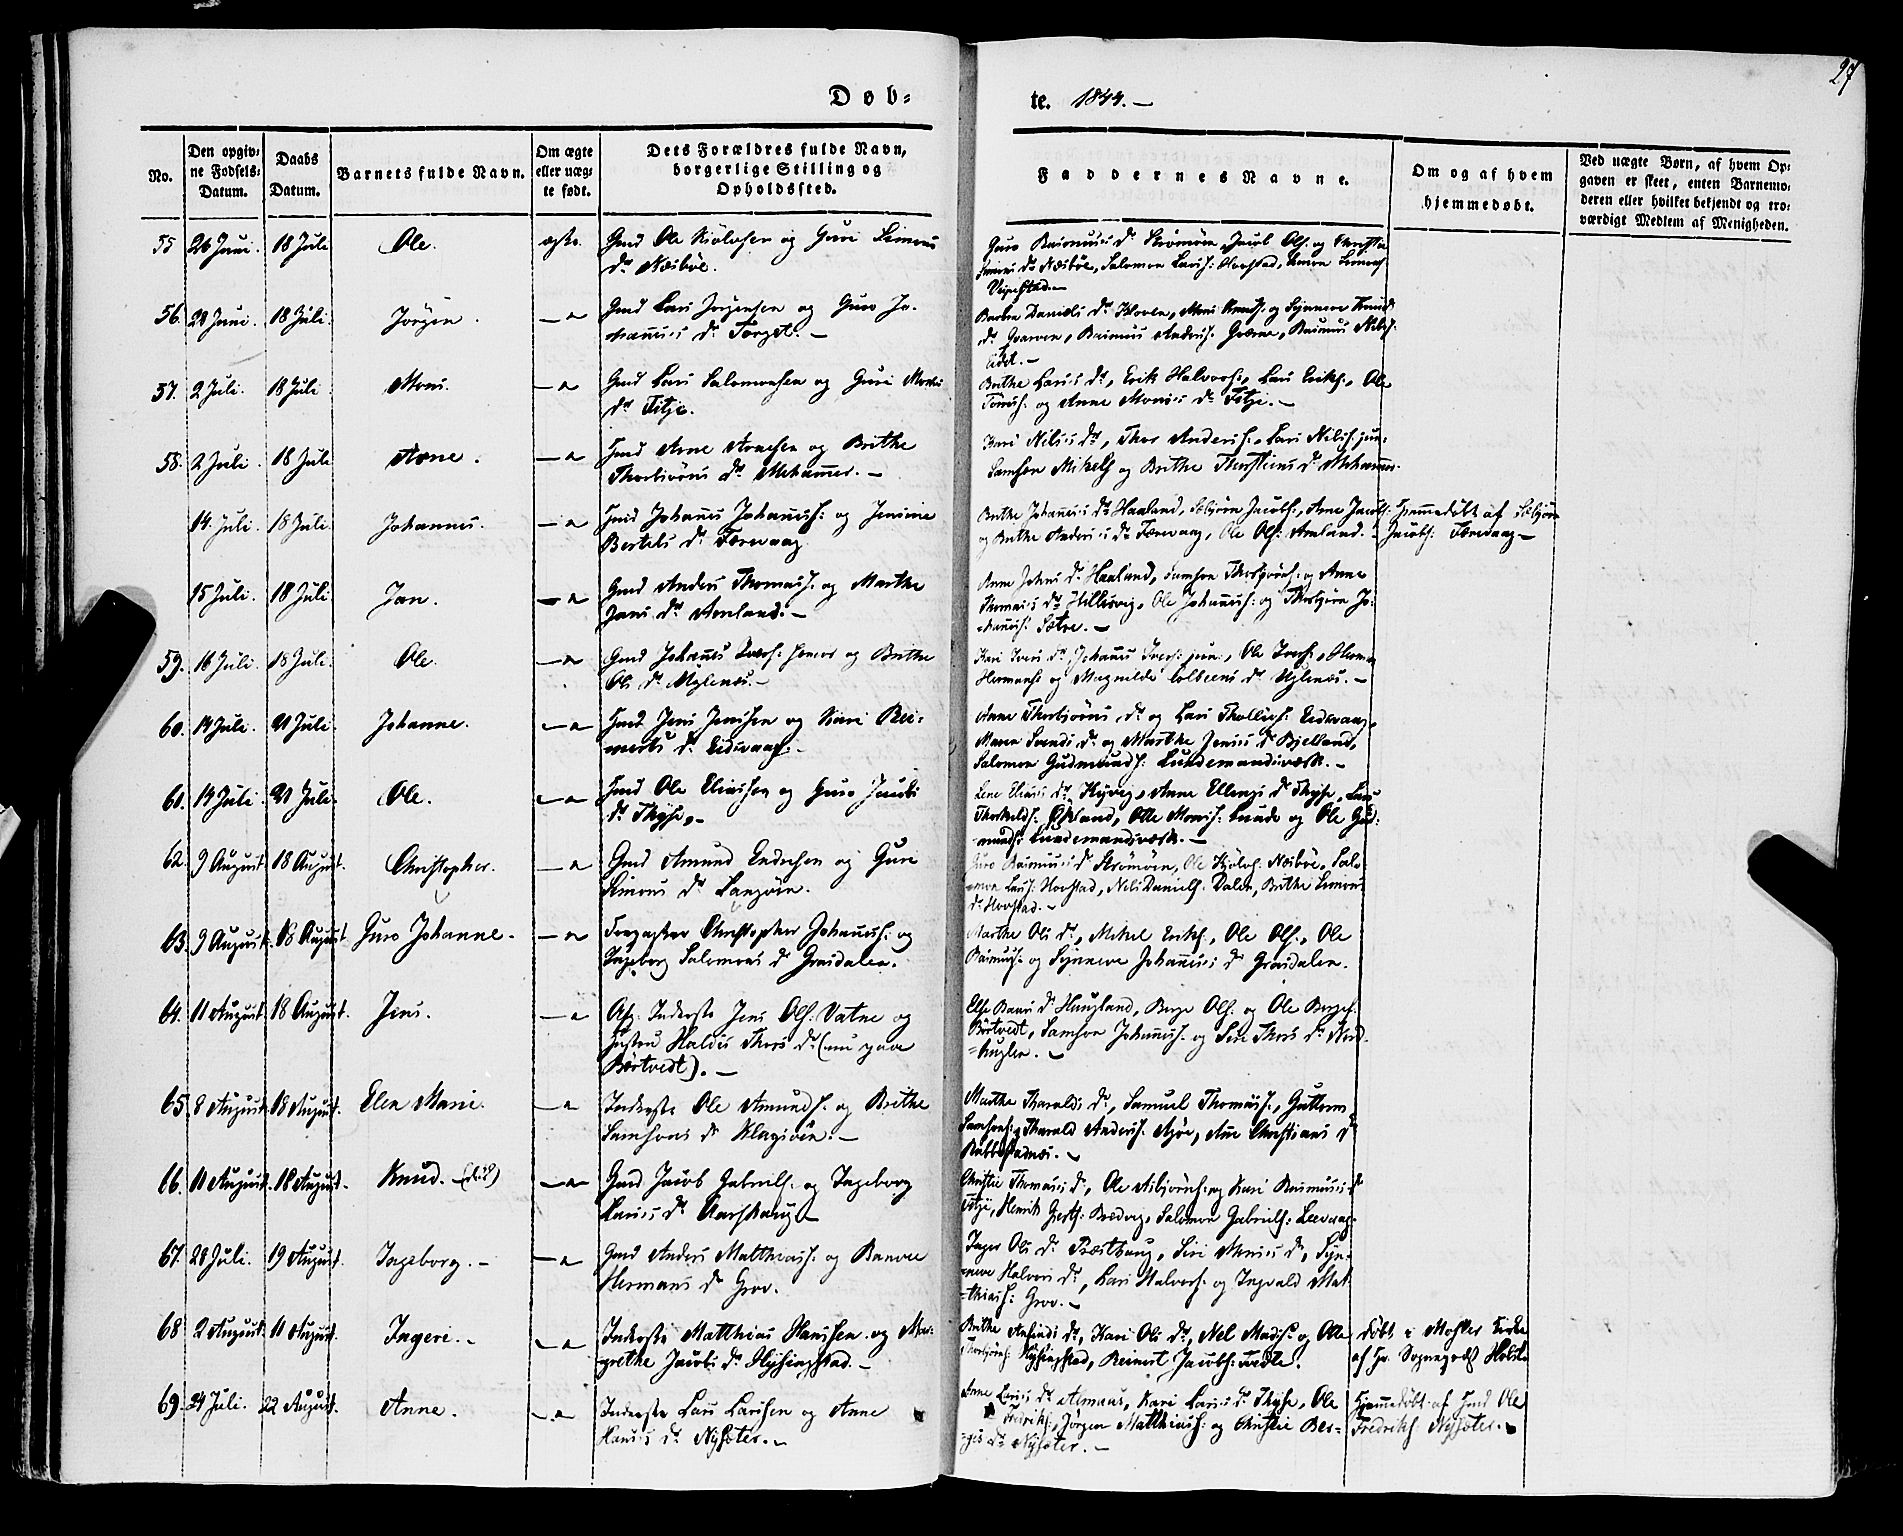 27
Døb-
te. 1844.-
No.
Den opgiv-
ne Fødsels-
Datum.
Daabs
Datum.
Barnets fulde Navn.
Om ægte
eller uæg-
te født.
Dets Forældres fulde Navn,
borgerlige Stilling og
Opholdssted.
Faddernes Navne.
Om og af hvem
hjemmedøbt.
Ved uægte Børn, af hvem Op-
gaven er skeet, enten Barnemo-
deren eller hvilket bekjendt og tro-
værdigt Medlem af Menigheden.
55 26 Juni. 18 Juli Ole. ægte. Gmd Ole Kiølvsen og Guri Simons
Dr Næsbøe.
Guro Rasmus's Dr Strømøen, Jacob Ols. og
Simons Dr Næsbøe, Salomon Lars's: Hovstad, Simon
56. 28 Juni. 18 Juli. Jørgen. -"- Gmd Lars Jørgensen og Guro Jo-
hannis's Dr Torget.-
Barbra Daniels Dr Hoven, Mons Knuds. og Synneve Knuds
Dr Gvarven, Rasmus Anders. Gværne, Rasmus Nils's.
57. 2 Juli. 18 Juli Mons. -"- Gmd Lars Salomonsen og Guri Mons's
Dr Fitje.
Brithe Lars's Dr, Erik Halvors:, Lars Eriks:, Ole
Tørris: og Anne Mons's Dr Fitje.-
58. 2 Juli. 18 Juli Arne. -"- Gmd Arne Arnesen og Brithe
Thorbiørns Dr Mehammer.-
Kari Nils's Dr, Thor Anders:, Lars Nils: jun:
Samson Mikels og Brithe Thorsteins Dr Mehammer.
14. Juli. 18 Juli Johannes. -"- Gmd Johannes Johannes: og Jensine
Bertels Dr Færevaag.
Brithe Johannes's Dr Haaland, Sæbjørn Jacobs:, Arne Jacobs:
og Brithe Anders's Dr Færevaag, Ole Ols: Amland.-
Hjemmedøbt af Sæbjørn
Jacobs: Færevaag-
15 Juli. 18 Juli Jan. -"- Gmd Anders Thomas's. og Marthe
Jans Dr Amland.-
Anne Johns Dr Haaland, Samson Thorbjørns: og Anne
Thomas's Dr Hillesvig, Ole Johannes: og Thorbjørn Jo-
hannes: Sætre.-
59. 16 Juli. 18 Juli. Ole. -"- Gmd Johannes Ivers: senior og Brithe
Ols Dr Uglenæs.-
Kari Ivers Dr, Johannes Ivers: jun:, Ole Ivers:, Herman
Hermans: og Magnilde Colbeens Dr Uglenæs.-
60. 14 Juli. 21 Juli. Johanne. -"- Gmd Jens Jensen og Kari Rei-
nerts Dr Eidsvaag.-
Anne Thorbiørns Dr og Lars Thollefs: Eidsvaag,
Maren Svends Dr og Marthe Jens's Dr Bjelland,
Salomon Gudmunds: Lundemandsværk.-
61. 14 Juli. 21 Juli. Ole. -"- Gmd Ole Eliassen og Guro Jacobs
Dr Thyse.-
Lene Elias's Dr Høyvig, Anne Ellings Dr Thyse, Lars
Thorkelds: Økland, Otte Mons: Lunde og Ole Gud-
munds: Lundemandsværk.-
62. 9 August. 18 August. Christopher. -"- Gmd Amund Endresen og Guri
Simons Dr Langøen.
Guro Rasmus's Dr Strømøen, Ole Kjølvs: Næsbøe, Salo-
mon Lars: Hovstad, Nils Daniels: Dalen, Brithe Simons
Dr Hovstad.-
63. 9 August. 18 August. Guro Johanne. -"- Forpagter Christopher Johannes: og
Ingeborg Salomons Dr Grasdalen.
Marthe Ols Dr, Mikel Eriks:, Ole Ols:, Ole
Rasmus: og Synneve Johannes's Dr Grasdalen.
64. 11 August. 18 August. Jens. -"- Afg. Inderste Jens Ols: Vatne og
Hustru Haldis Thors Dr (nu paa
Børtvedt).-
Else Baars Dr Haugland, Berge Ols: og Ole Berges.
Børtvedt, Samson Johannes: og Siri Thors Dr Nord-
huglen.-
65. 8 August. 18 August. Elen Marie. -"- Inderste Ole Amunds. og Brithe
Samsons Dr Klagsøen.-
Marthe Haralds Dr, Samuel Thomas's., Guttorm
Samsons: og Harald Anders:, Ane Christians Dr
66. 11 August. 18 August. Knud. -(død) -"- Gmd Jacob Gabriels: og Ingeborg
Lars's Dr Aarskaug.-
Christie Thomas's Dr, Ole Asbjørns: og Kari Rasmus's Dr
Fitje, Henrik Gjerts: Brædvig, Salomon Gabriels: Leervaag.
67. 28 Juli. 19 August. Ingeborg.- -"- Gmd Anders Matthias's. og Ranvei
Hermans Dr Grov.
Inger Ols Dr Præsthaug, Siri Mons's Dr, Syn-
neve Halvors Dr, Lars Halvors: og Ingvald Mat-
thias's: Grov.-
68 2 August. 11 August. Ingeri.- -"- Inderste Matthias Hansen og Mar-
grethe Jacobs Dr Hysingstad.-
Brithe Anfinds Dr, Kari Ols Dr, Nel Mads's og Otte
Thorbjørns: Hysingstad, Reinert Jacobs: Tvedte.
Døbt i Moster Kirke
af Hr. Sognepræst Holst
69. 24 Juli. 22 August. Anne. -"- Inderste Lars Larsen og Anne
Hans's Dr Nysæter.-
Anne Lars's Dr Almaas, Kari Lars's Dr Thyse, Ole
Fredriks:, Jørgen Matthias's: og Christie Ber-
ges Dr Nysæter.-
Hjemmedøbt af Gmd Ole
Fredriks: Nysæter.-